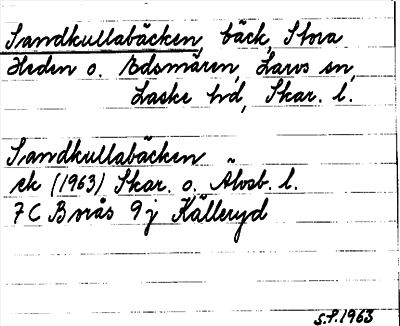 Sandkullabäcken, bäck, Stora
Heden o. Edsmären, Larvs sn,
Laske hd, Skar. l.
Sandkullabäcken
ek (1963) Skar. o. Älvsb. l.
7C Borås 9j Källeryd
S.P. 1963